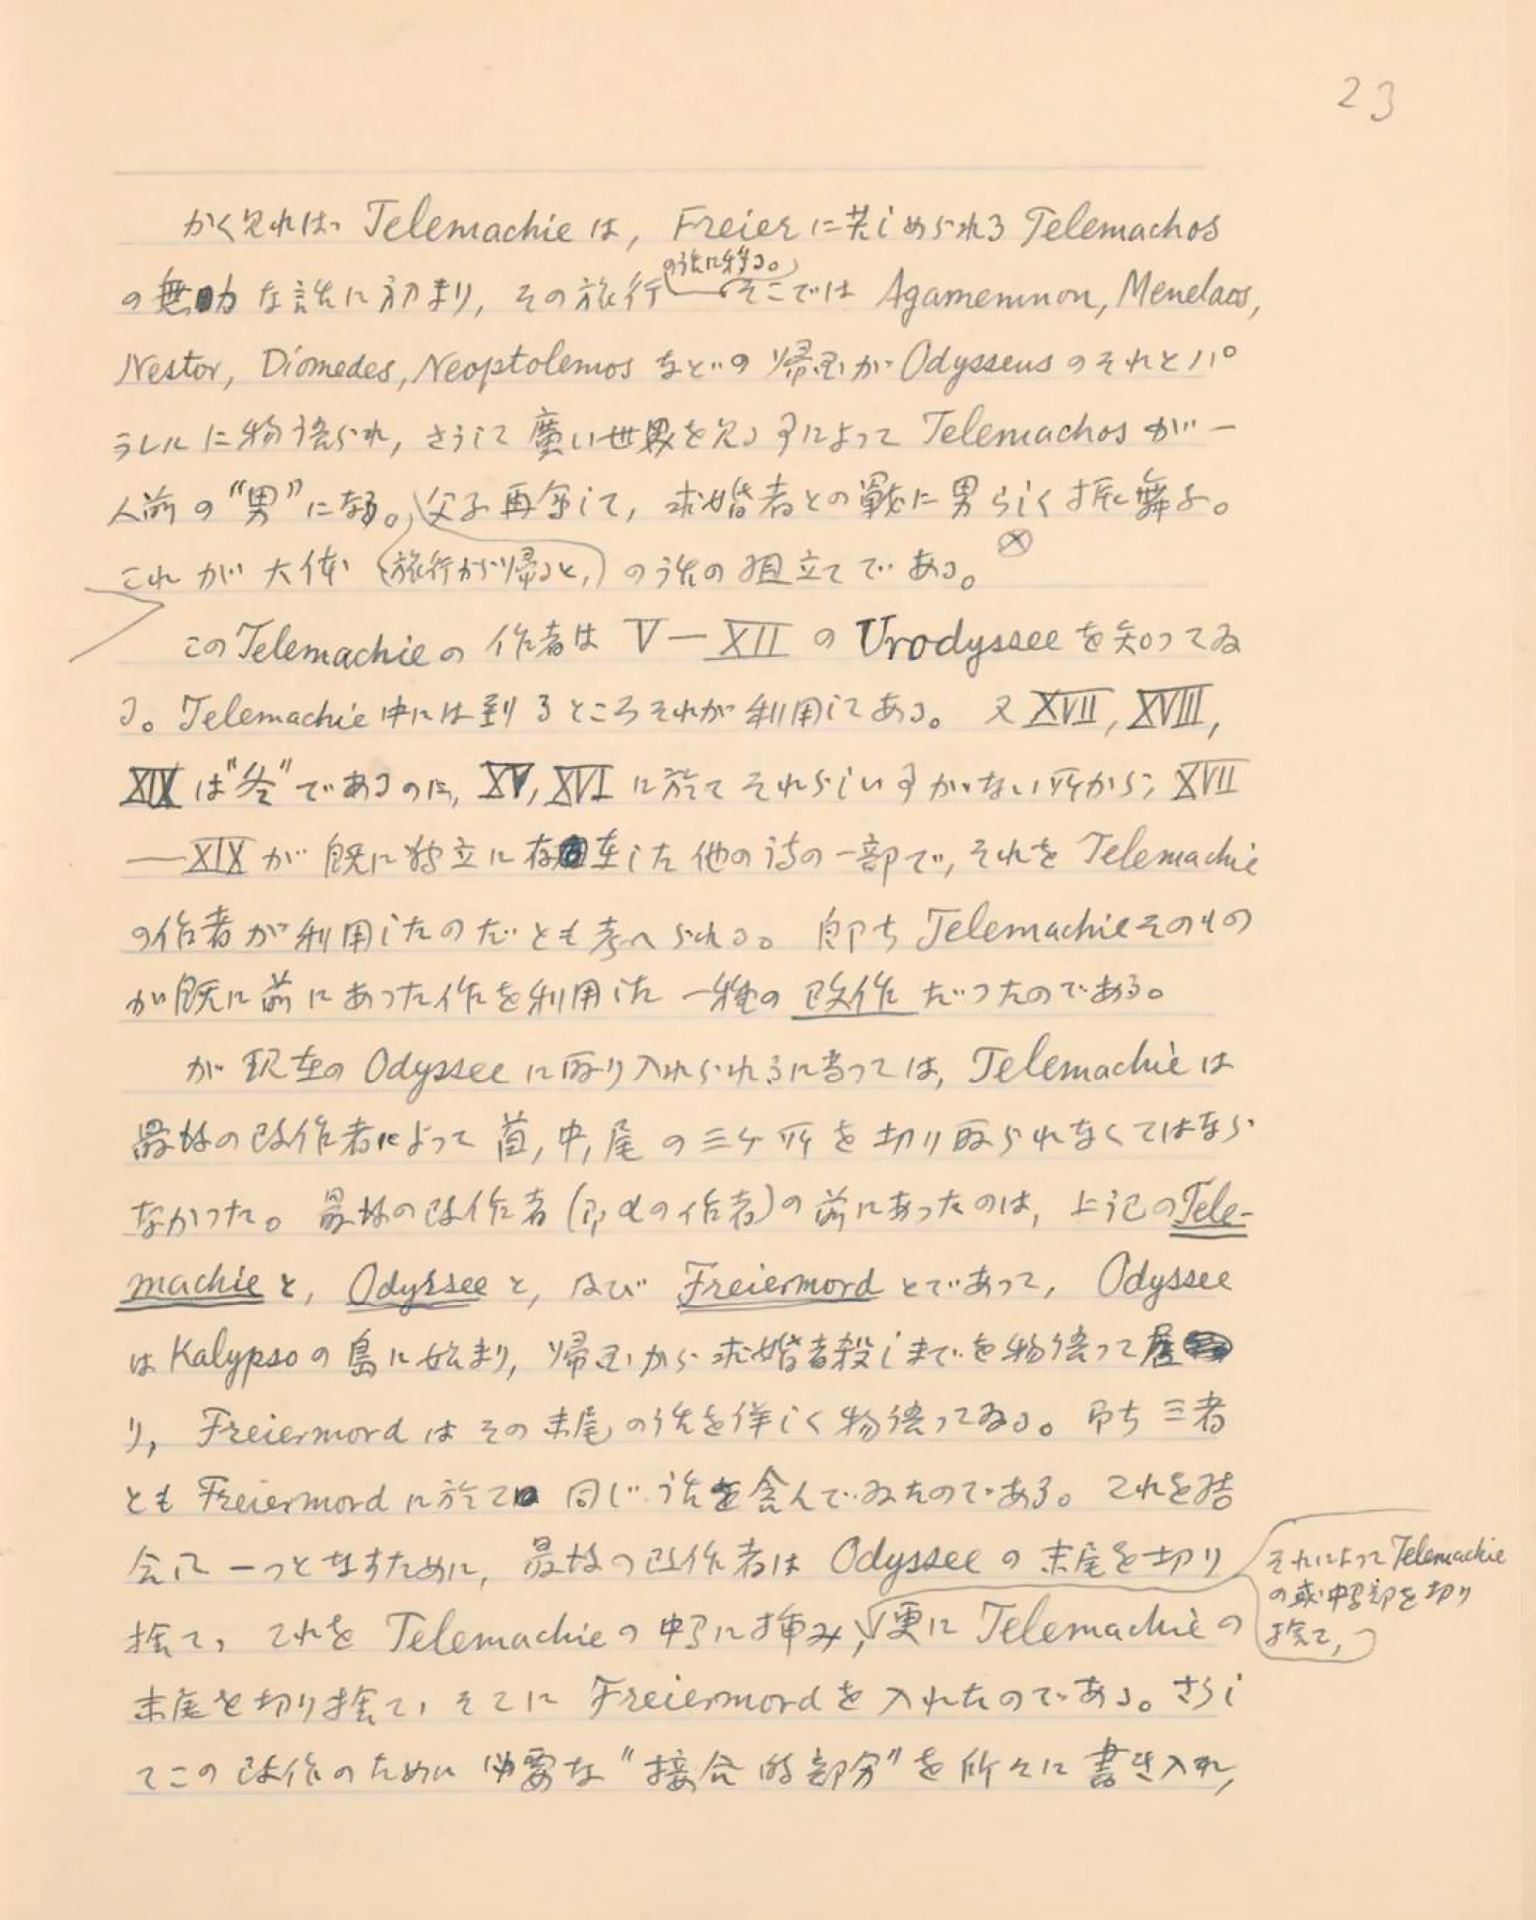 23
かく見れば、Telemachieは, Freierに苦しめられるTelemachos
の無力な話に初まり, その旅行の話に移る。そこでは Agamemnon, Menelaos,
Nestor, Diomedes, Neoptolemos などの帰国が Odysseus のそれとパ
ラレルに物語られ, さうして広い世界を見る事によって Telemachos が一
人前の“男”になる。旅行から帰ると, 父子再会して, 求婚者との戦に男らしく振舞ふ。
これが大体の話の組立てである。 ⊗
このTelemachieの作者は V—XII の Urodyssee を知ってゐ
る。Telemachie中には到るところそれが利用してある。 又 XVII, XVIII,
XIX は“冬”であるのに, XV, XVI に於てそれらしい事がない所から, XVII
—XIX が既に独立に存在した他の詩の一部で, それを Telemachie
の作者が利用したのだとも考へられる。 即ち Telemachieそのもの
が既に前にあった作を利用した一種の改作だったのである。
が現在の Odyssee に取り入れられるに当っては, Telemachie は
最後の改作者によって首, 中, 尾の三ヶ所を切り取られなくてはなら
なかった。 最後の改作者(即αの作者)の前にあったのは, 上記のTele-
machieと, Odysseeと, 及び Freiermord とであって, Odyssee
は Kalypsoの島に始まり, 帰国から求婚者殺しまでを物語って居
り, Freiermord はその末尾の話を詳しく物語ってゐる。 即ち三者
とも Freiermord に於て同じ話を含んでゐたのである。 これを結
合して一つとなすために, 最後の改作者は Odyssee の末尾を切り
捨て, これを Telemachieの中ほどに挿み, 更に Telemachieの
それによって Telemachie
の或中部を切り
捨て,
末尾を切り捨て, そこに Freiermordを入れたのである。さうし
てこの改作のために必要な“接合的部分”を所々に書き入れ,